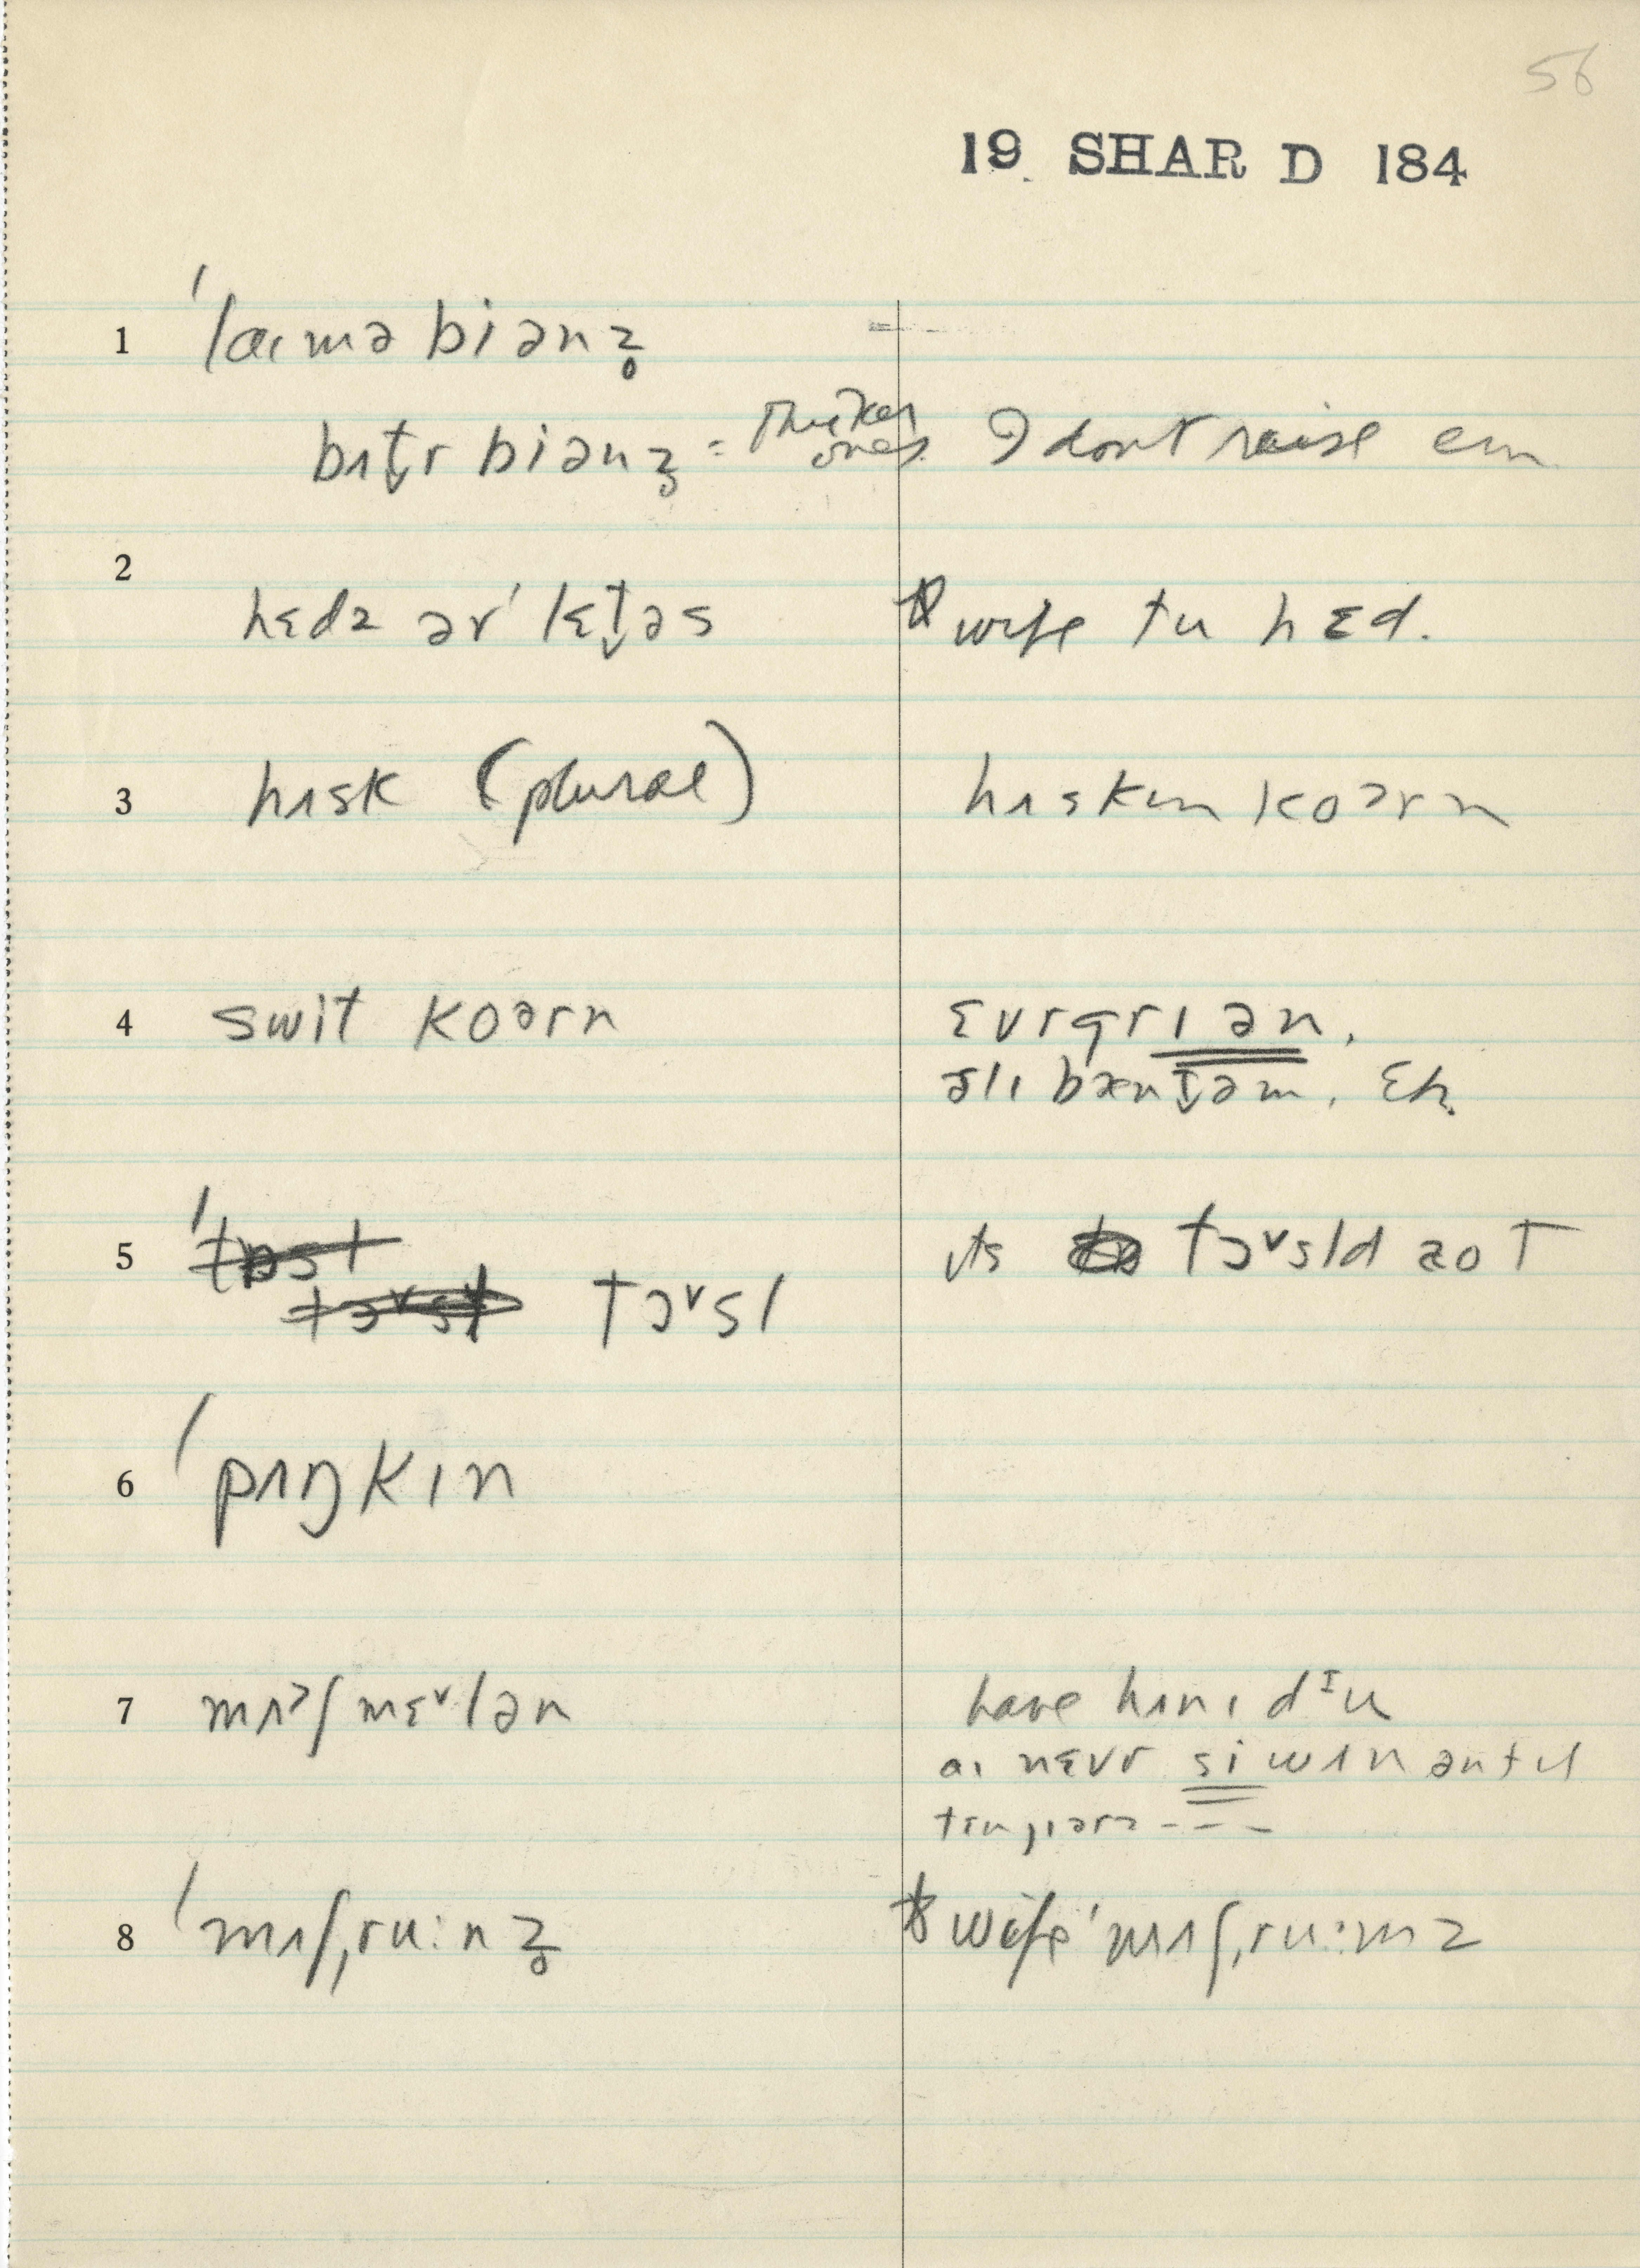 56
19 SHAR D 184
1 ˈlaɪmə biənz̥
bʌt̬r biənz̥ = Thicker ones I dont raise em
2 hɛdz ər ˈlɛt̬əs wife tu hɛd.
3 hʌsk (plural) hʌskɪn koərn
4 swit koərn ɛvrgriən,
ɜlɪ bænt̬əm, Etc.
5 tɔ˅sl ɪts tɔ˅sld aot
6 ˈpʌŋkɪn
7 mʌɜʃmɛ˅lən have hʌnɪ dᶦu
aɪ nɛvr si wʌn əntɪl
8 ˈmʌʃˌru:nz̥ wife ˈmʌʃˌru:mz